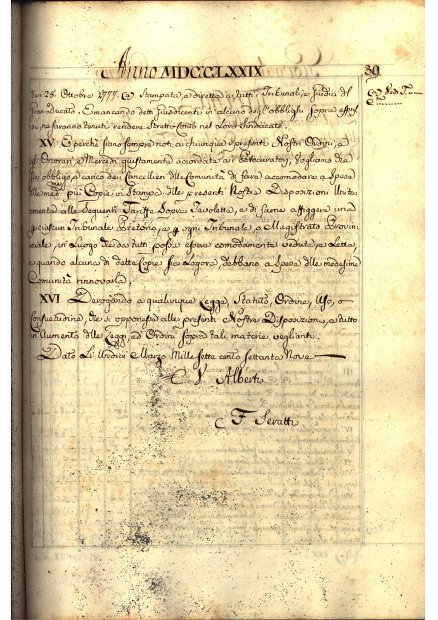 Anno MDCCLXXIX 39
25. Ottobre 1777. Stampata, e diretta a tutti i Tribunali, e Giudici del
Gran-Ducato. E mancando detti Giusdicenti in alcuno degli obblighi sopra
saranno tenuti renderne Stretto Conto nel Loro Sindacato.
XV. E perchè siano sempre noti a chiunque i presenti Nostri Ordini, e
gli Onorari, e Mercedi giustamente accordate ai Procuratori, Vogliamo che
obbligo, e carico dei Cancellieri delle Comunità di fare accomodare a Spese
delle più Copie in Stampa delle presenti Nostre Disposizioni Unita-
mente alle Seguenti Tariffe Sopra Tavolette, e di farne affiggere una
ciascun Tribunale Pretorio, e ogni Tribunale, e Magistrato Provin-
ciale, in Luogo che da tutti possa essere comodamente veduta, e Letta,
e quando alcuna di dette Copie sia Logora, debbano a Spese delle medesime
Comunità rinnovarla;
XVI Derogando a qualunque Legge, Statuto, Ordine, Uso, o
Consuetudine, che si opponesse alle presenti Nostre Disposizioni, e tutto
in Aumento delle Leggi, ed Ordini sopra tali materie veglianti.
Dato Li Undici Marzo Mille sette cento settanta Nove
V. Alberti
F. Seratti